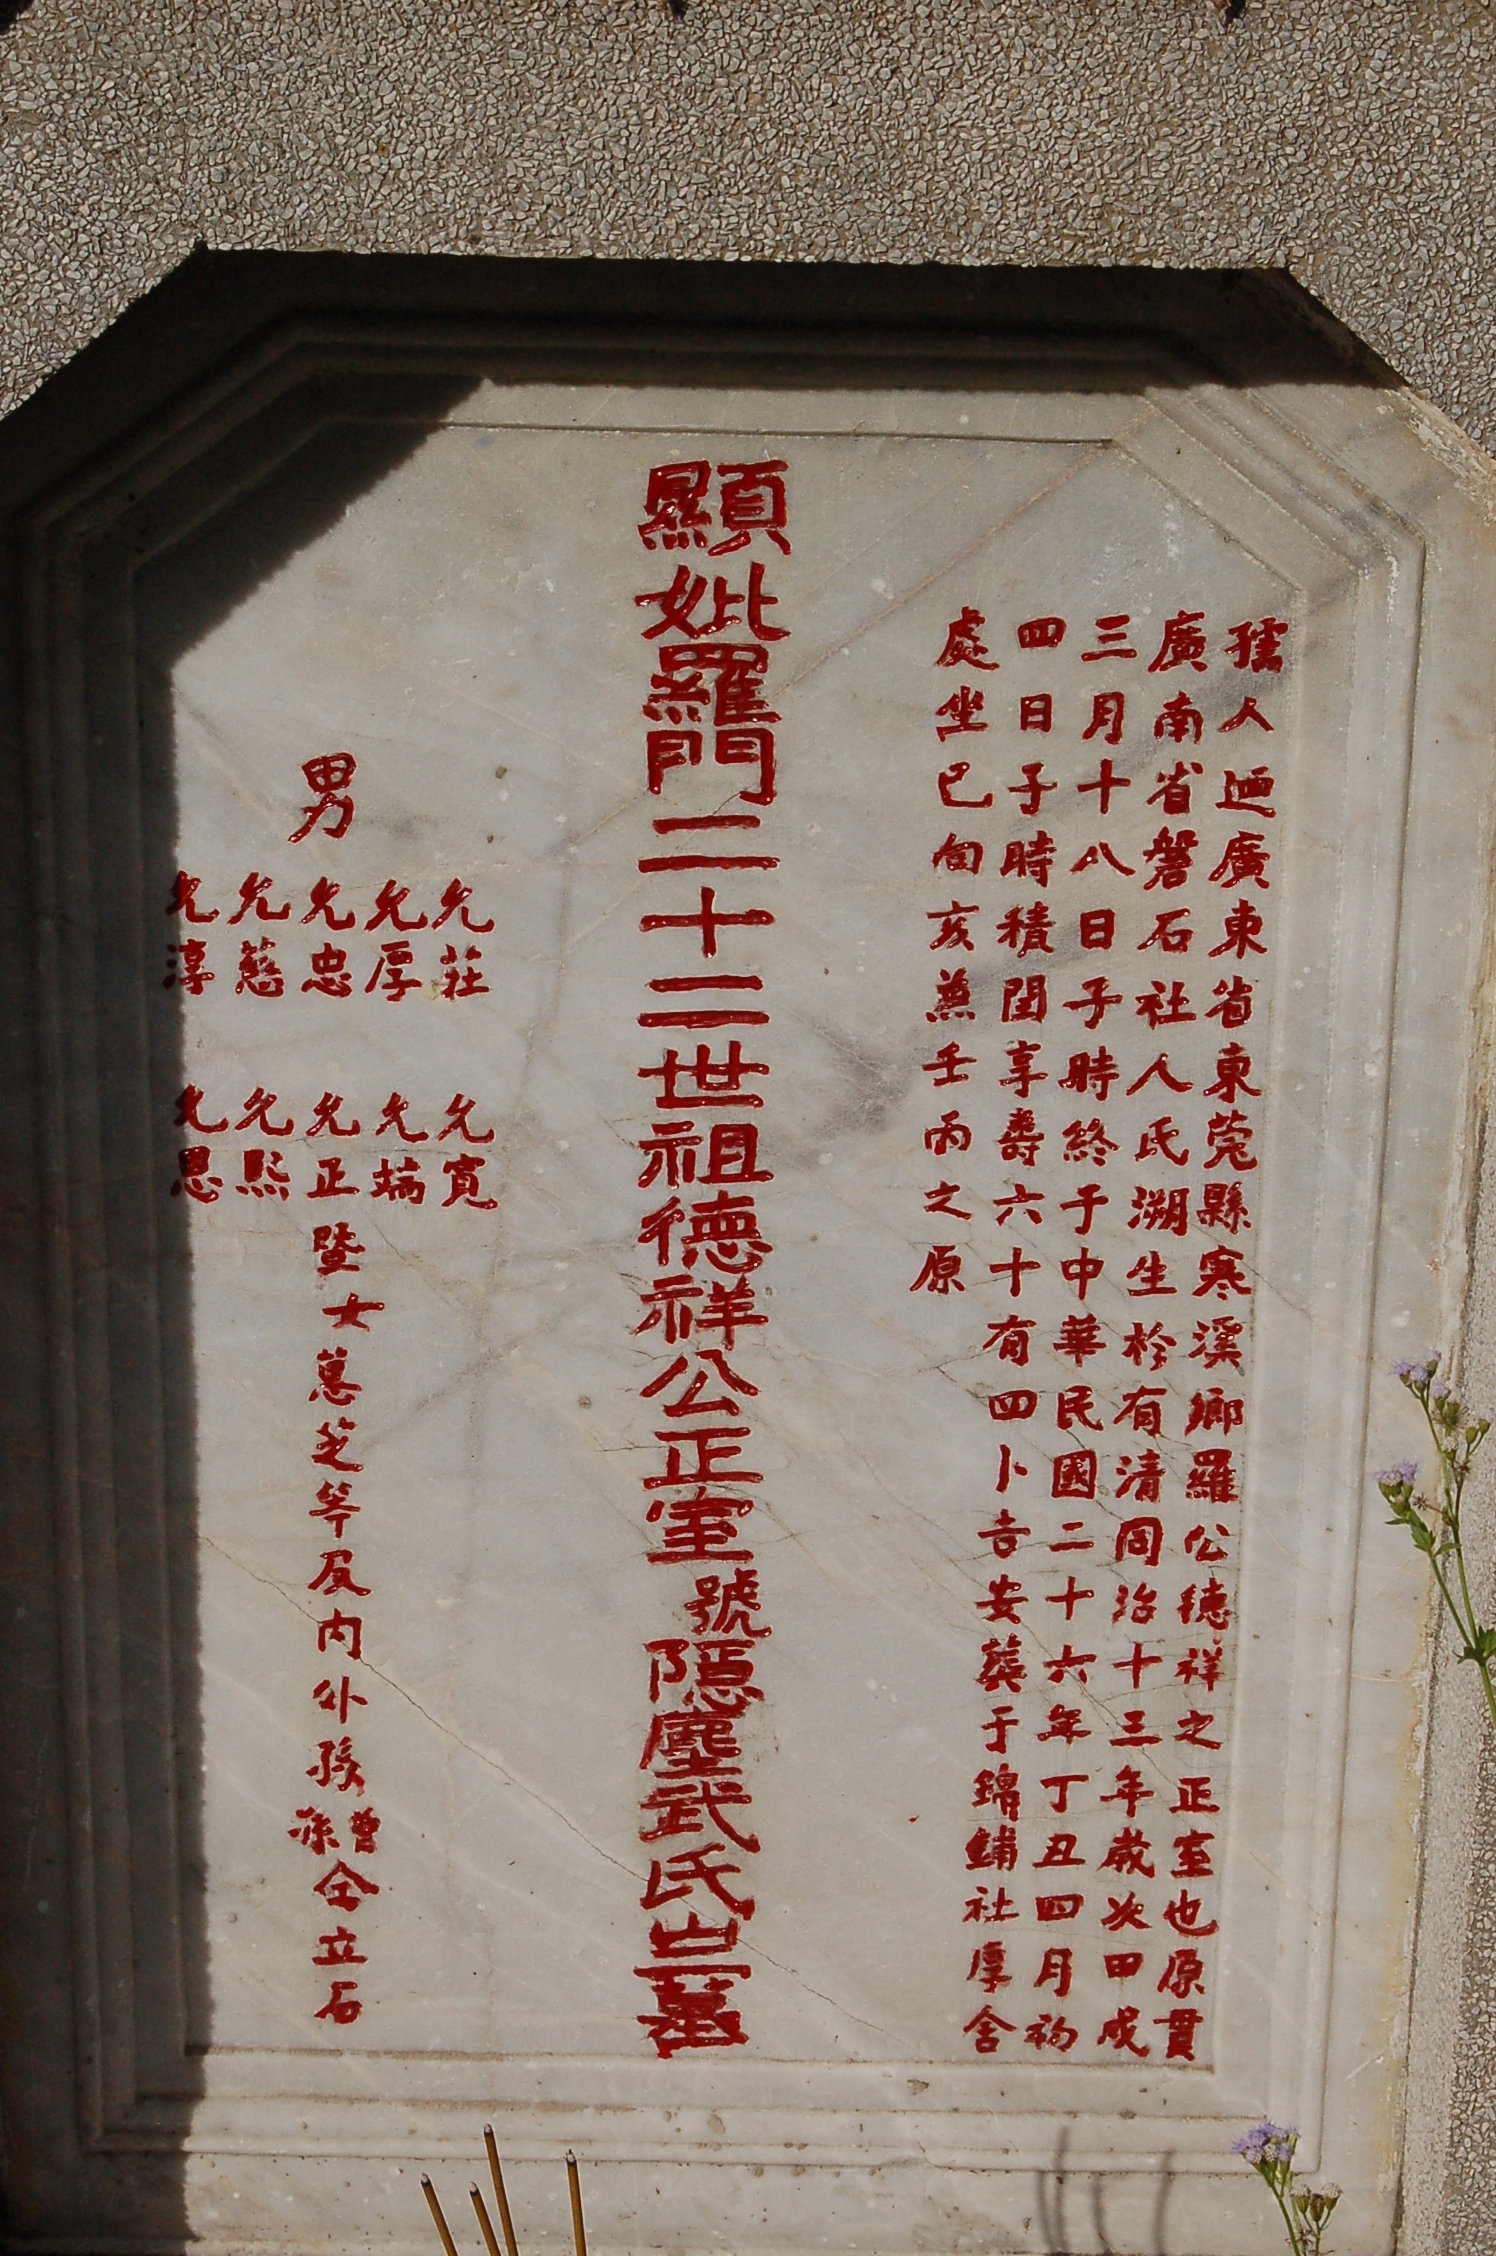 孺人迺廣東省東莞縣寒溪鄉羅公德祥之正室也原貫
廣南省磐石社人氏溯生於有清同治十三年歲次甲戌
三月十八日子時終于中華民國二十六年丁丑四月初
四日子時積閏享壽六十有四卜吉安葬于錦鋪社厚舍
處坐巳向亥兼壬丙之原
顯妣羅門二十二世祖德祥公正室號隱塵武氏之墓
男
允莊 允寬
允厚 允端
允忠 允正
允慈 允熙
允淳 允恩
暨女蕙芝等及內外孫曾孫仝立石